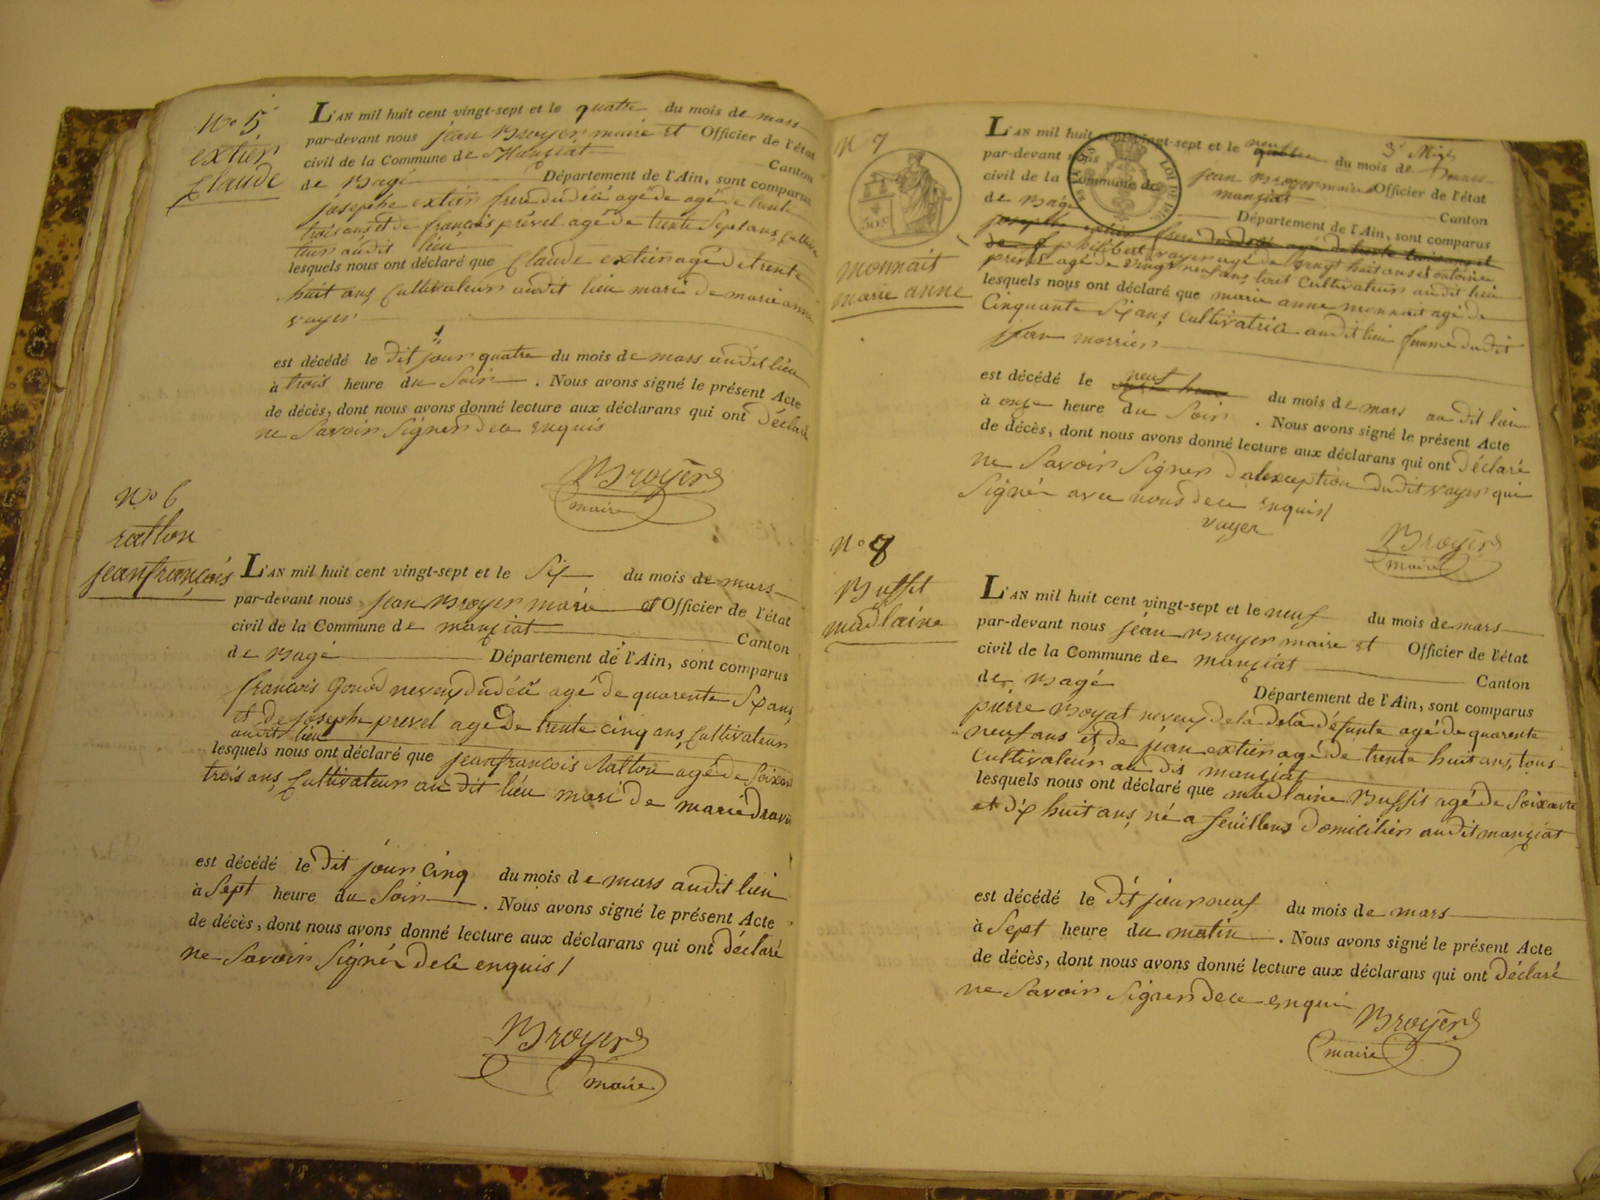 No 5
extier
Claude
L'AN mil huit cent vingt-sept et le quatre du mois de mars
par-devant nous jean Broyer maire et Officier de l'état
civil de la Commune de Manziat Canton
de Bagé Département de l'Ain, sont comparus
josephe extier frere du décédé agé de agé de trente
trois ans et de françois prével agé de trente Sept ans, Cultiva
teurs audit lieu
lesquels nous ont déclaré que Claude extier agé de trente
huit ans Cultivateur audit lieu mari de marie anne
voyer
est décédé le dit jour quatre du mois de mars audit lieu
à trois heure du Soir . Nous avons signé le présent Acte
de décès, dont nous avons donné lecture aux déclarans qui ont déclaré
ne Savoir Signer de ce enquis
Broyer
maire
No 6
ratton
jean françois
L'AN mil huit cent vingt-sept et le Six du mois de mars
par-devant nous jean Broyer maire et Officier de l'état
civil de la Commune de manziat Canton
de Bage Département de l'Ain, sont comparus
françois Gonod neveu du décé agé de quarente Six ans
et de josephe prevel agé de trente cinq ans, Cultivateur
audit lieu
lesquels nous ont déclaré que jean françois Ratton agé de Soixan
trois ans, Cultivateur au dit lieu mari de marie
est décédé le dit jour Cinq du mois de mars audit lieu
à Sept heure du Soir . Nous avons signé le présent Acte
de décès, dont nous avons donné lecture aux déclarans qui ont déclaré
ne Savoir Signér de ce enquis /
Broyer
maire
N 7
monnait
marie anne
3e
L'AN mil huit cent vingt-sept et le neuf du mois de mars
par-devant nous jean Broyer maire Officier de l'état
civil de la Commune de manziat Canton
de Bage Département de l'Ain, sont comparus
philibert voyer agé de vingt huit ans et antoine
prevel agé de vingt neuf ans, tout Cultivateur au dit lieu
lesquels nous ont déclaré que marie anne monnait agé de
Cinquante Six ans, Cultivatrice au dit lieu femme du dit
jean morrier
est décédé le neuf du mois de mars au dit lieu
à onze heure du Soir . Nous avons signé le présent Acte
de décès, dont nous avons donné lecture aux déclarans qui ont déclaré
ne Savoir Signer à l'exception du dit voyer qui
Signér avec nous de ce enquis /
voyer
Broyer
maire
No 8
Buffit
madlaine
L'AN mil huit cent vingt-sept et le neuf du mois de mars
par-devant nous jean Broyer maire et Officier de l'état
civil de la Commune de manziat Canton
de Bagé Département de l'Ain, sont comparus
pierre Boyat neveu de la de la défunte agé de quarente
neuf ans et de jean extier agé de trente huit ans, tous
Cultivateur au dit manziat
lesquels nous ont déclaré que madlaine Buffit agé de Soixante
et dix huit ans, né a feuillens domicilier audit manziat
est décédé le dit jour neuf du mois de mars
à Sept heure du matin . Nous avons signé le présent Acte
de décès, dont nous avons donné lecture aux déclarans qui ont déclaré
ne Savoir Signer de ce enqui
Broyer
maire